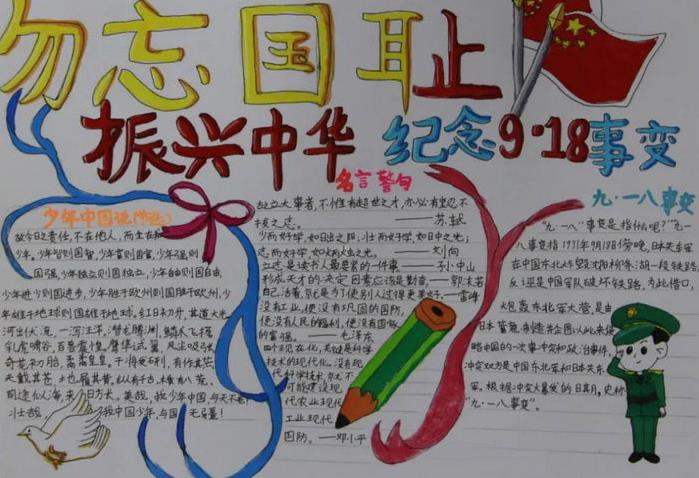 勿忘国耻
振兴中华
纪念9·18事变
少年中国说
故今日之责任，不在他人，而全在我
少年。少年智则国智，少年富则国富，少年强则
国强，少年独立则国独立，少年自由则国自由，
少年进步则国进步，少年胜于欧州则国胜于欧州，少
年雄于地球则国雄于地球。红日初升，其道大光
河出伏流，一泻汪洋。潜龙腾渊，鳞爪飞扬
乳虎啸谷，百兽震惶。鹰隼试翼，风尘吸张
奇花初胎，矞矞皇皇。干将发硎，有作其芒
天戴其苍，地履其黄。纵有千古，横有八荒。
前途似海，来日方长。美哉，我少年中国，与天不老！
壮哉，我中国少年，与国无疆！
名言警句
古之立大事者，不惟有超世之才，亦必有坚忍不
拔之志。——苏轼
少而好学，如日出之阳；壮而好学，如日中之光；
志而好学，如炳烛之光。——刘向
立志是读书人最要紧的一件事——孙中山
形成天才的决定因素应该是勤奋。——郭沫若
自己活着，就是为了使别人过得更美好——雷锋
没有工业，便没有巩固的国防，
便没有人民的福利，便没有国家
的富强。——毛泽东
四个现在化，关键是科学
技术的现代化。没有现
代科学技术，就不
可能建设现
代农业现代
工业现代
国防。——邓小平
九·一八事变
“九·一八”事变是指什么呢？“九一
八事变指1931年9月18日傍晚，日本关东军
在中国东北炸毁沈阳柳条湖一段铁路，
反诬是中国军队破坏铁路，为此借口，
炮轰东北军大营，是由
日本蓄意制造并企图以此来侵
略中国的一次事中突和政治事件，
冲突双方是中国东北军和日本关东
军。根据冲突爆发的日其月，史称
“九·一八事变”。